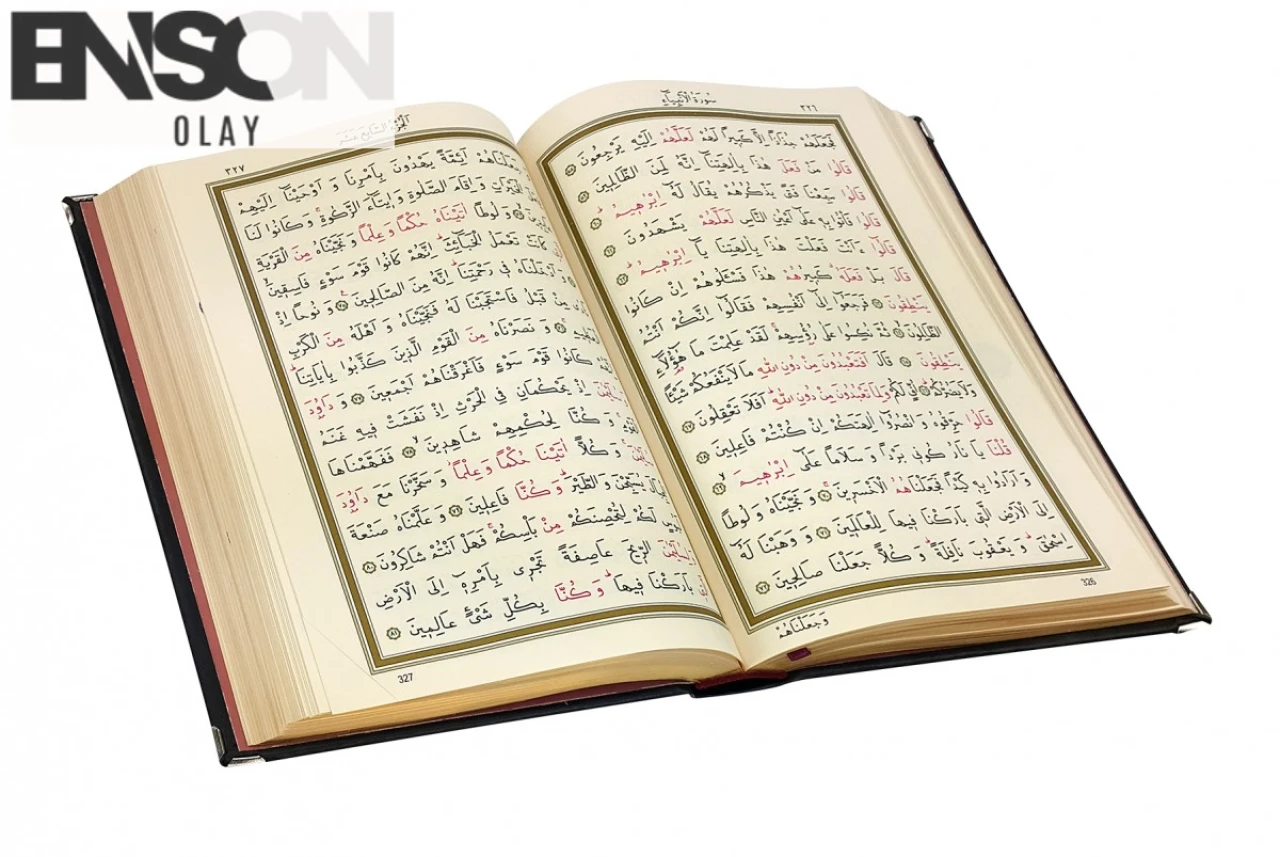 ENSON
OLAY
٣٢٦
سُورَةُ الْاَنْبِيَاءِ
فَجَعَلَهُمْ جُذَاذًا اِلَّا كَبِيرًا لَهُمْ لَعَلَّهُمْ اِلَيْهِ يَرْجِعُونَ ٥٨
قَالُوا مَنْ فَعَلَ هٰذَا بِاٰلِهَتِنَٓا اِنَّهُ لَمِنَ الظَّالِمِينَ ٥٩
قَالُوا سَمِعْنَا فَتًى يَذْكُرُهُمْ يُقَالُ لَهُٓ اِبْرٰهِيمُ ٦٠
قَالُوا فَأْتُوا بِهِ عَلٰٓى اَعْيُنِ النَّاسِ لَعَلَّهُمْ يَشْهَدُونَ ٦١
قَالُٓوا ءَاَنْتَ فَعَلْتَ هٰذَا بِاٰلِهَتِنَا يَٓا اِبْرٰهِيمُ ٦٢
قَالَ بَلْ فَعَلَهُ كَبِيرُهُمْ هٰذَا فَسْـَٔلُوهُمْ اِنْ كَانُوا
يَنْطِقُونَ ٦٣ فَرَجَعُٓوا اِلٰٓى اَنْفُسِهِمْ فَقَالُٓوا اِنَّكُمْ اَنْتُمُ
الظَّالِمُونَ ٦٤ ثُمَّ نُكِسُوا عَلٰى رُؤُسِهِمْ لَقَدْ عَلِمْتَ مَا هٰٓؤُلَٓاءِ
يَنْطِقُونَ ٦٥ قَالَ اَفَتَعْبُدُونَ مِنْ دُونِ اللّٰهِ مَا لَا يَنْفَعُكُمْ شَيْـًٔا
وَلَا يَضُرُّكُمْ ٦٦ اُفٍّ لَكُمْ وَلِمَا تَعْبُدُونَ مِنْ دُونِ اللّٰهِ اَفَلَا تَعْقِلُونَ ٦٧
قَالُوا حَرِّقُوهُ وَانْصُرُٓوا اٰلِهَتَكُمْ اِنْ كُنْتُمْ فَاعِلِينَ ٦٨
قُلْنَا يَا نَارُ كُونِي بَرْدًا وَسَلَامًا عَلٰٓى اِبْرٰهِيمَ ٦٩
وَاَرَادُوا بِهِ كَيْدًا فَجَعَلْنَاهُمُ الْاَخْسَرِينَ ٧٠ وَنَجَّيْنَاهُ وَلُوطًا
اِلَى الْاَرْضِ الَّتِي بَارَكْنَا فِيهَا لِلْعَالَمِينَ ٧١ وَوَهَبْنَا لَهُٓ
اِسْحٰقَ وَيَعْقُوبَ نَافِلَةً وَكُلًّا جَعَلْنَا صَالِحِينَ ٧٢
وَجَعَلْنَاهُمْ
326
اَلْجُزْءُ السَّابِعَ عَشَرَ
٣٢٧
وَجَعَلْنَاهُمْ اَئِمَّةً يَهْدُونَ بِاَمْرِنَا وَاَوْحَيْنَٓا اِلَيْهِمْ
الْخَيْرَاتِ وَاِقَامَ الصَّلٰوةِ وَاِيتَٓاءَ الزَّكٰوةِ وَكَانُوا لَنَا
وَلُوطًا اٰتَيْنَاهُ حُكْمًا وَعِلْمًا وَنَجَّيْنَاهُ مِنَ الْقَرْيَةِ
كَانَتْ تَعْمَلُ الْخَبَٓائِثَ اِنَّهُمْ كَانُوا قَوْمَ سَوْءٍ فَاسِقِينَ
وَاَدْخَلْنَاهُ فِي رَحْمَتِنَا اِنَّهُ مِنَ الصَّالِحِينَ ٧٥ وَنُوحًا اِذْ
مِنْ قَبْلُ فَاسْتَجَبْنَا لَهُ فَنَجَّيْنَاهُ وَاَهْلَهُ مِنَ الْكَرْبِ
وَنَصَرْنَاهُ مِنَ الْقَوْمِ الَّذِينَ كَذَّبُوا بِاٰيَاتِنَا
كَانُوا قَوْمَ سَوْءٍ فَاَغْرَقْنَاهُمْ اَجْمَعِينَ ٧٧ وَدَاوُدَ
اِذْ يَحْكُمَانِ فِي الْحَرْثِ اِذْ نَفَشَتْ فِيهِ غَنَمُ
وَكُنَّا لِحُكْمِهِمْ شَاهِدِينَ ٧٨ فَفَهَّمْنَاهَا
وَكُلًّا اٰتَيْنَا حُكْمًا وَعِلْمًا وَسَخَّرْنَا مَعَ دَاوُدَ
يُسَبِّحْنَ وَالطَّيْرَ وَكُنَّا فَاعِلِينَ ٧٩ وَعَلَّمْنَاهُ صَنْعَةَ
لَكُمْ لِتُحْصِنَكُمْ مِنْ بَأْسِكُمْ فَهَلْ اَنْتُمْ شَاكِرُونَ ٨٠
الرِّيحَ عَاصِفَةً تَجْرِي بِاَمْرِهِ اِلَى الْاَرْضِ
بَارَكْنَا فِيهَا وَكُنَّا بِكُلِّ شَيْءٍ عَالِمِينَ ٨١
327